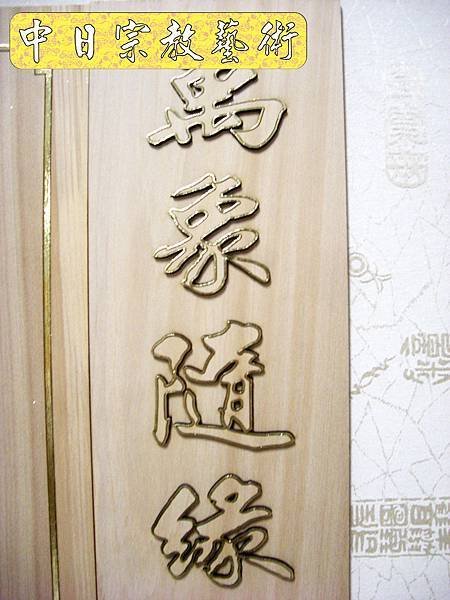 中日宗教藝術
萬象隨緣